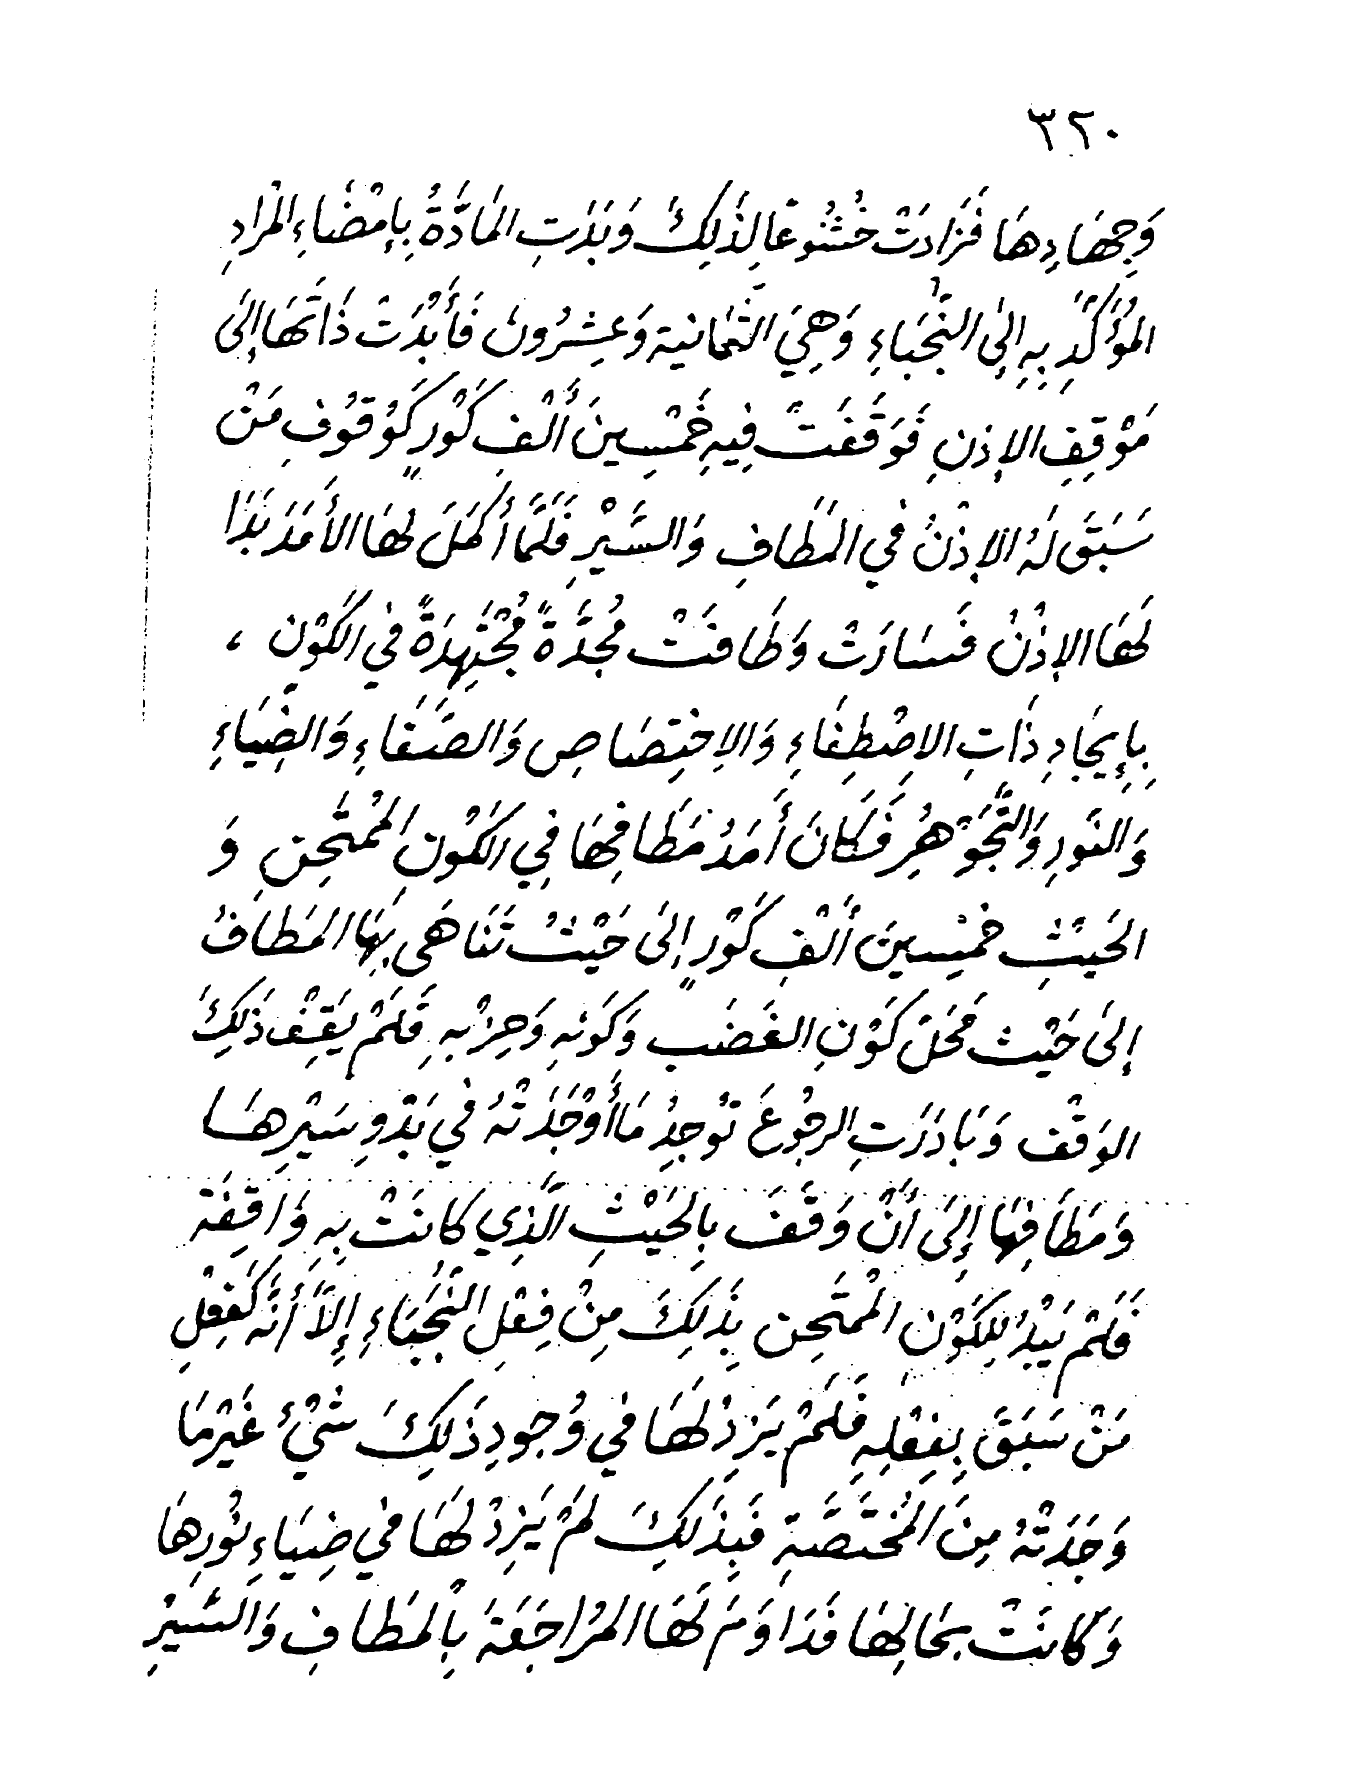 ٣٢٠
وَجِهَادِهَا فَزَادَتْ خُشُوعًا لِذَلِكَ وَبَدَتِ المَادَّةُ بِإِمْضَاءِ المُرَادِ
المُؤَكَّدِ بِهِ إِلَى النُّجَبَاءِ وَهِيَ الثَّمَانية وَعِشرُون فَأَبْدَتْ ذَاتَهَا إِلَى
مَوْقِفِ الإِذنِ فَوَقَفَتْ فِيهِ خَمْسِينَ أَلْفِ كَوْرٍ كَوُقوُفِ مَنْ
سَبَقَ لَهُ الإِذْنُ في المَطَافِ وَالسَّيْرِ فَلَمَّا أَكمَلَ لَهَا الأَمَدَ بَدَا
لَهَا الإِذْنُ فَسَارَتْ وَطَافَتْ مُجِدَّةً مُجْتَهِدَةً في الكَوْنِ ،
بِإِيجَادِ ذَاتِ الاِصْطِفَاءِ وَالاِختِصَاصِ وَالصَّفَاءِ وَالضِّيَاءِ
وَالنُّورِ وَالتَّجَوْهُرِ فَكَانَ أَمَدُ مَطَافِهَا فِي الكَوْنِ المُمْتَحِنِ وَ
الحَيْثِ خَمْسِينَ أَلْفِ كَوْرٍ إِلَى حَيْثُ تَنَاهَى بِهَا المَطَافُ
إِلَى حَيْثُ مَحَلِّ كَوْنِ الغَضَبِ وَكَوْنِهِ وَحِزْبِهِ فَلَمْ يَقِفْ ذَلِكَ
الوَقْف وَبَادَرَتِ الرجُوعَ تُوجِدُ مَا أَوْجَدَتْهُ فِي بَدْوِ سَيْرِهَا
وَمَطَافِهَا إِلَى أَنْ وَقَفَ بِالحَيْثِ الَّذِي كَانَتْ بِهِ وَاقِفَة
فَلَمْ يَبْدُ لِلكَوْنِ المُمْتَحِنِ بِذَلِكَ مِنْ فِعْلِ النُّجَبَاءِ إِلاَّ أَنَّهُ كَفِعْلِ
مَنْ سَبَقَ بِفِعْلِهِ فَلَمْ يَزِدْ لَهَا في وُجودِ ذَلِكَ شَيْءٌ غَيْرَ مَا
وَجَدَتْهُ مِنَ المُخْتَصَّةِ فَبِذَلِكَ لَمْ يَزِدْ لَهَا في ضِيَاءِ نُورِهَا
وَكَانَتْ بِحَالِهَا فَدَاوَمَ لَهَا المُرَاجَعَة بِالمَطَافِ وَالسَّيْرِ